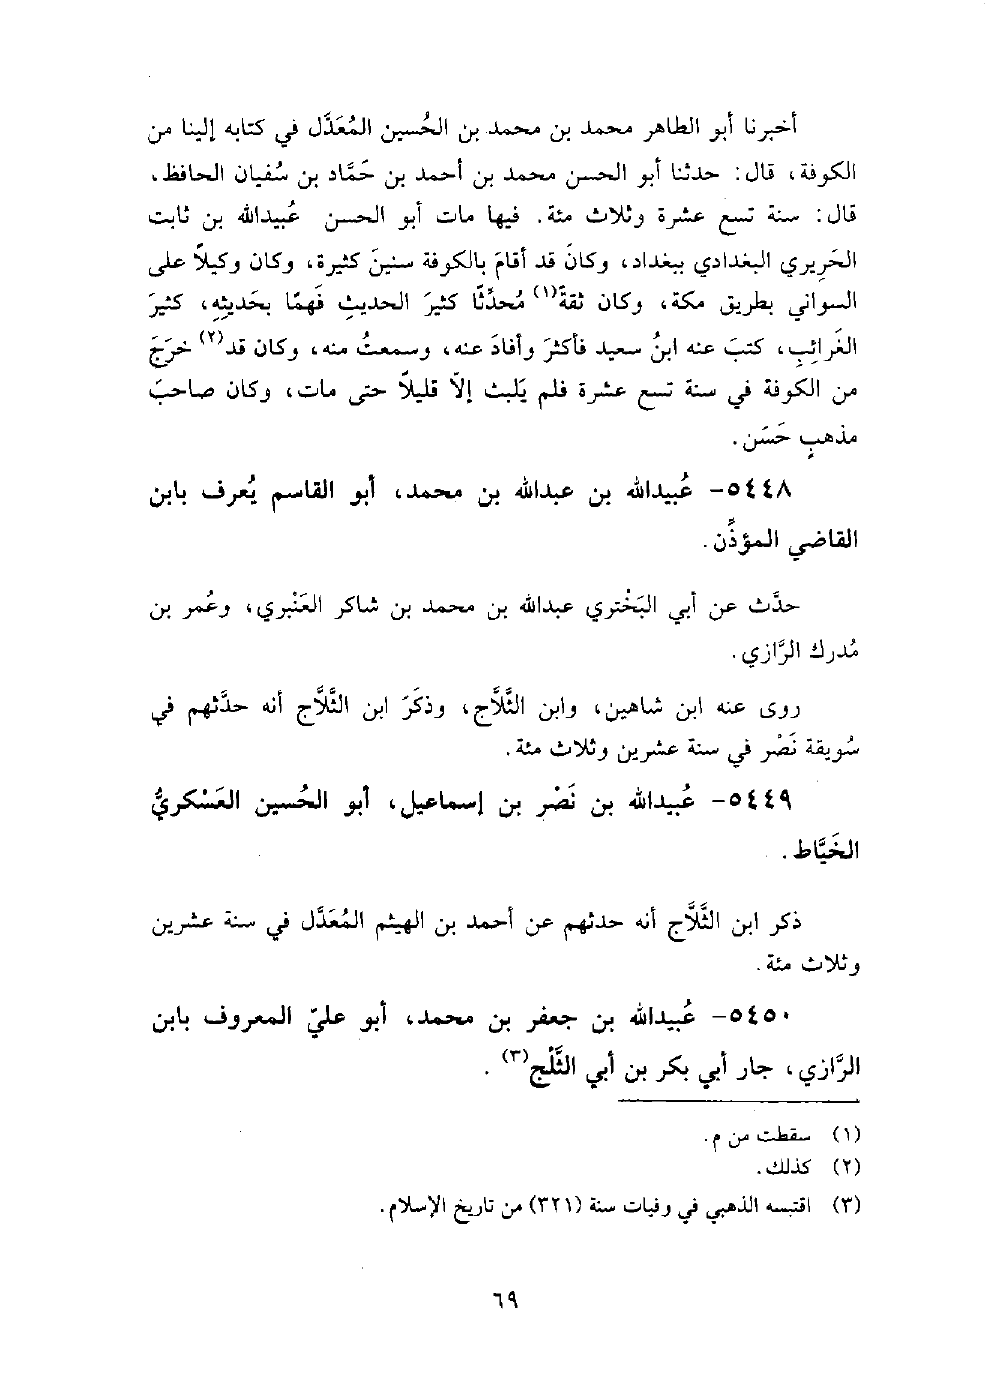 أخبرنا أبو الطاهر محمد بن محمد بن الحُسين المُعَدَّل في كتابه إلينا من
الكوفة، قال: حدثنا أبو الحسن محمد بن أحمد بن حَمَّاد بن سُفيان الحافظ،
قال: سنة تسع عشرة وثلاث مئة. فيها مات أبو الحسن عُبيدالله بن ثابت
الحَرِيري البغدادي ببغداد، وكان قد أقامَ بالكوفة سنينَ كثيرة، وكان وكيلاً على
السواني بطريق مكة، وكان ثقةً(١) مُحدِّثًا كثيرَ الحديثِ فَهِمًا بحَديثِهِ، كثيرَ
الغَرائِبِ، كتبَ عنه ابنُ سعيد فأكثرَ وأفادَ عنه، وسمعتُ منه، وكان قد(٢) خرَجَ
من الكوفة في سنة تسع عشرة فلم يَلبث إلاّ قليلاً حتى مات، وكان صاحبَ
مذهبٍ حَسَنٍ.
٥٤٤٨- عُبيدالله بن عبدالله بن محمد، أبو القاسم يُعرف بابن
القاضي المؤذِّن.
حدَّث عن أبي البَخْتري عبدالله بن محمد بن شاكر العَنْبري، وعُمر بن
مُدرك الرَّازي.
روى عنه ابن شاهين، وابن الثَّلاَّج، وذكَرَ ابن الثَّلاَّج أنه حدَّثهم في
سُويقة نَصْر في سنة عشرين وثلاث مئة.
٥٤٤٩- عُبيدالله بن نَصْر بن إسماعيل، أبو الحُسين العَسْكريُّ
الخَيَّاط.
ذكر ابن الثَّلاَّج أنه حدثهم عن أحمد بن الهيثم المُعَدَّل في سنة عشرين
وثلاث مئة.
٥٤٥٠- عُبيدالله بن جعفر بن محمد، أبو عليّ المعروف بابن
الرَّازي، جار أبي بكر بن أبي الثَّلْج(٣).
(١) سقطت من م.
(٢) كذلك.
(٣) اقتبسه الذهبي في وفيات سنة (٣٢١) من تاريخ الإسلام.
٦٩